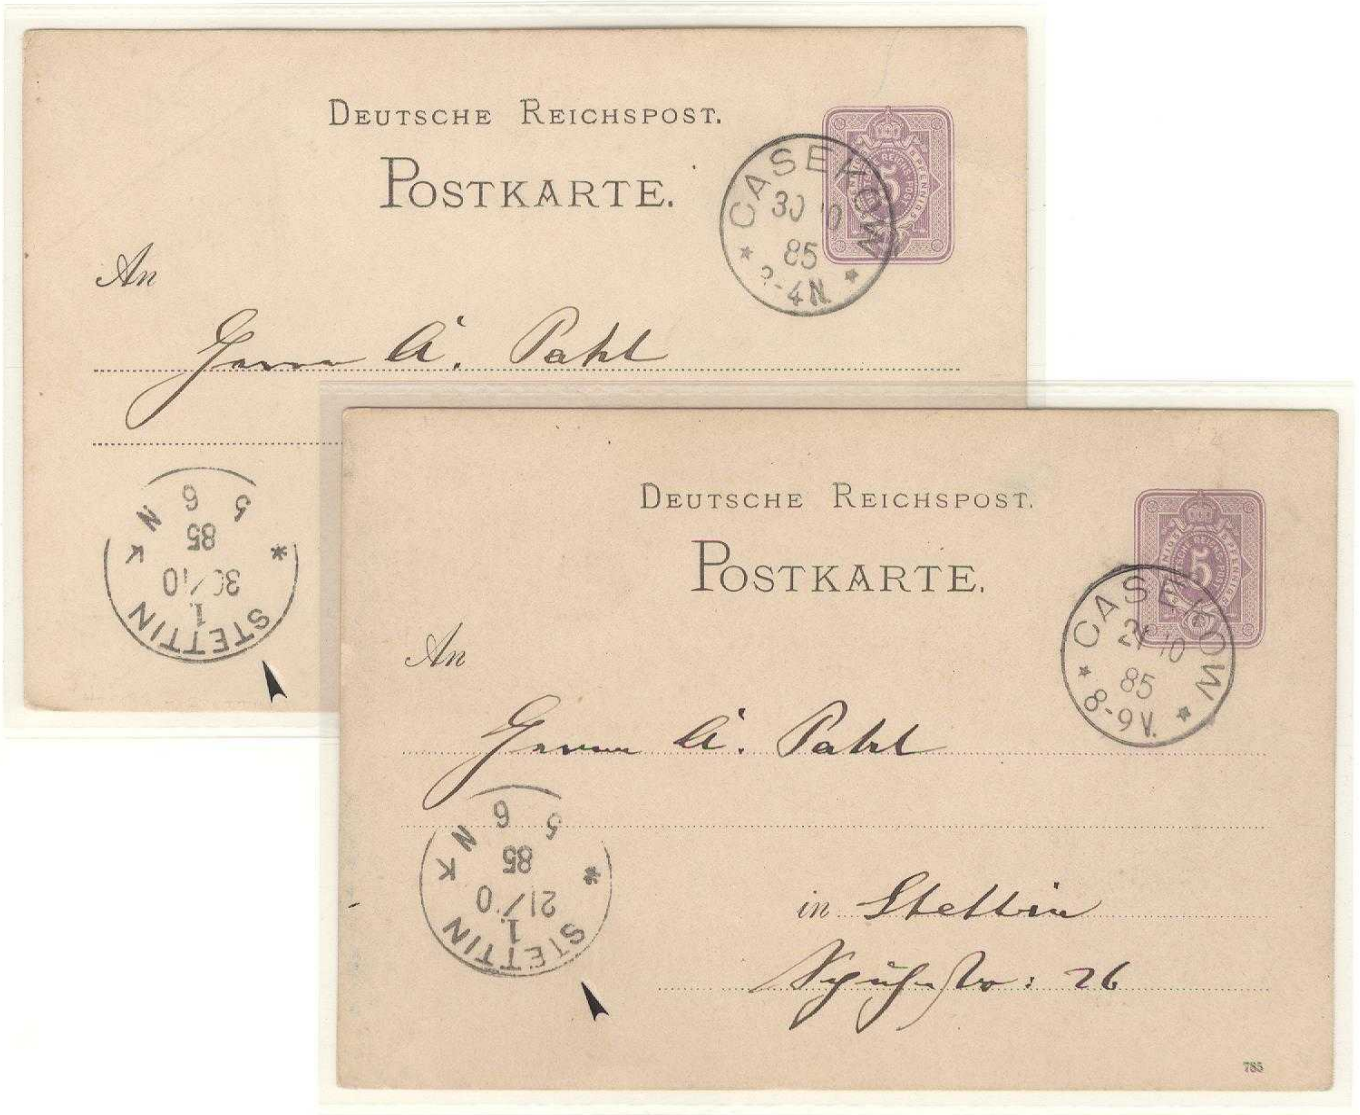 DEUTSCHE REICHSPOST.
POSTKARTE.
CASEKOW
30 10
85
-4N.
An
Herrn A. Pahl
STETTIN
1.
30/10
85
5 6
N K
DEUTSCHE REICHSPOST.
POSTKARTE.
5
CASEKOW
21 10
85
8-9V.
An
Herrn A. Pahl
STETTIN
1.
21/10
85
5 6
N K
in Stettin
26
785